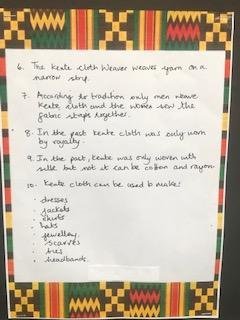 6. The kente cloth weaver weaves yarn on a
narrow strip.
7. According to tradition only men weave
kente cloth and the women sew the
fabric strips together.
8. In the past kente cloth was only worn
by royalty.
9. In the past, kente was only woven with
silk but not it can be cotton and rayon
10. Kente cloth can be used to make:
• dresses
• jackets
• shirts
• hats
• jewellery
• scarves
• ties
• headbands.